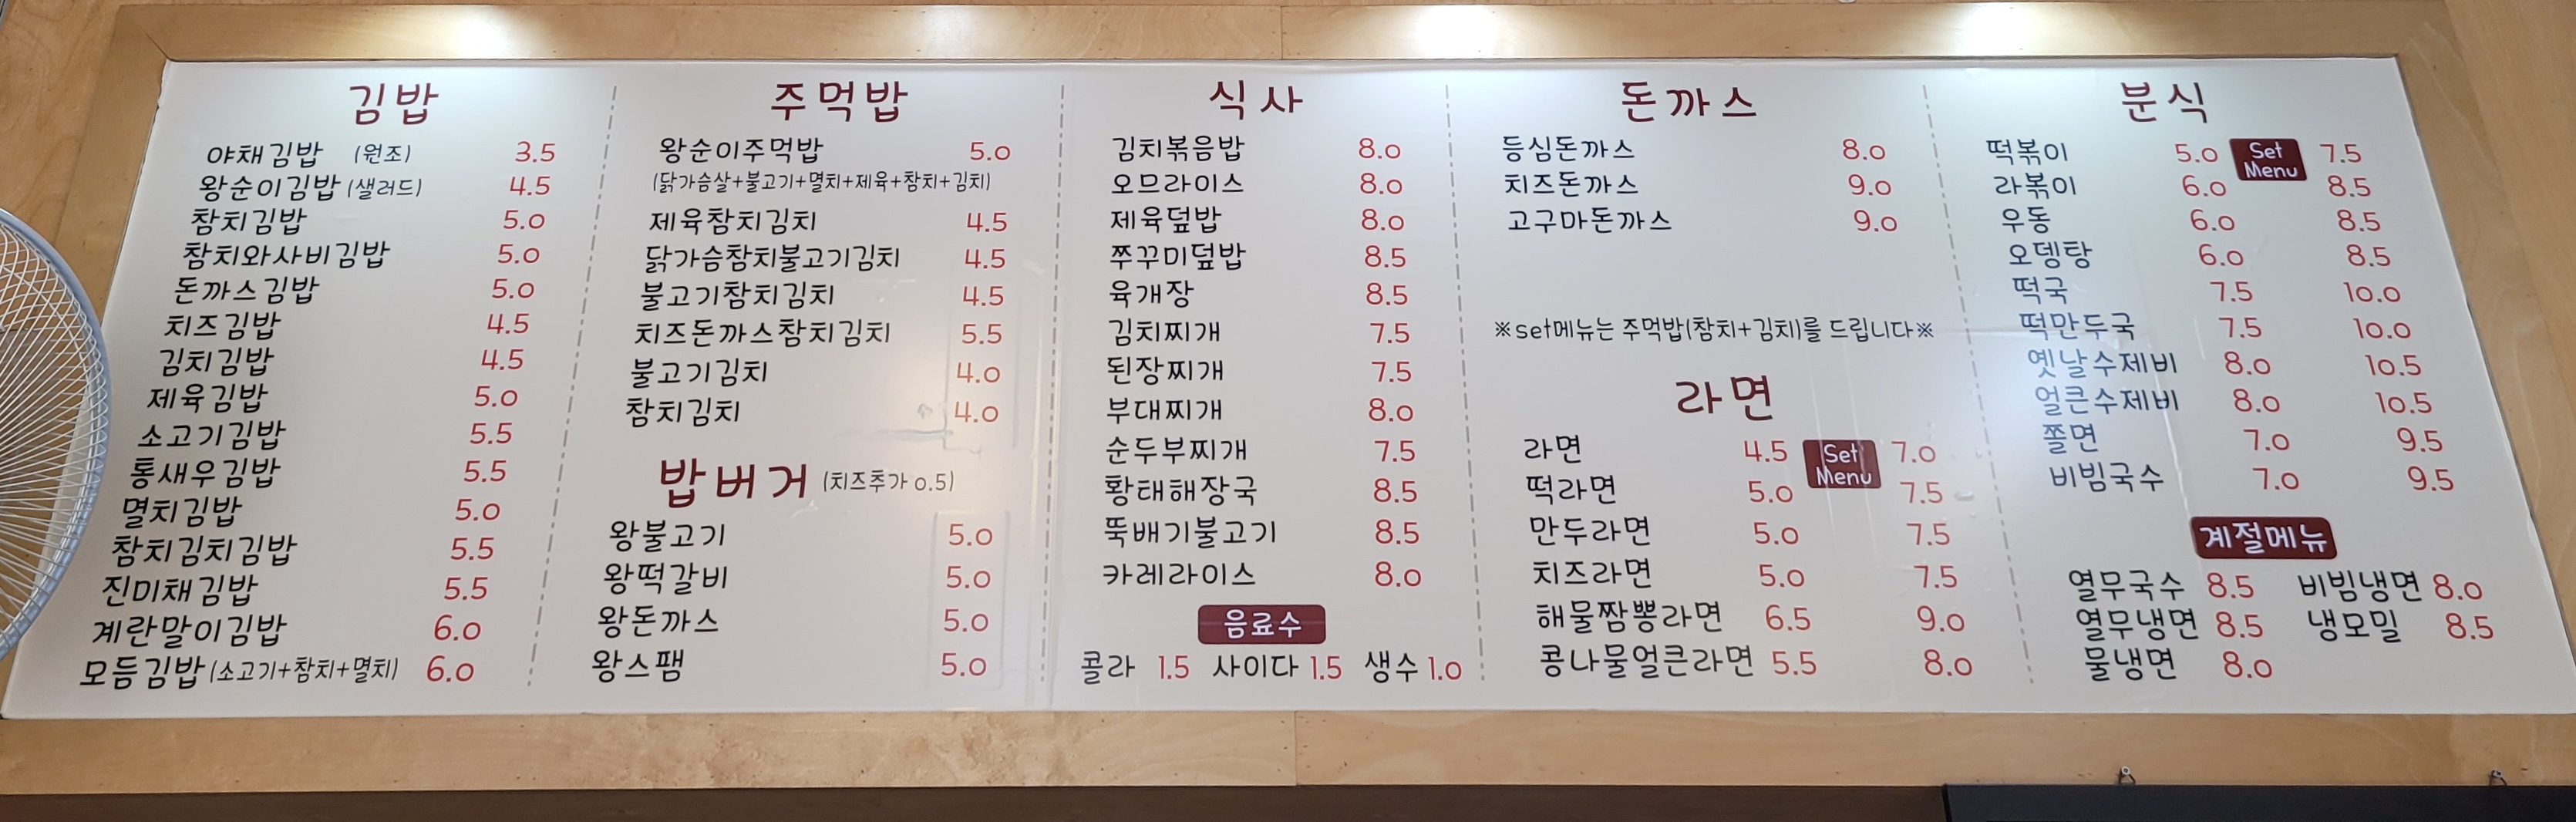 김밥
야채김밥 (원조) 3.5
왕순이김밥 (샐러드) 4.5
참치김밥 5.0
참치와사비김밥 5.0
돈까스김밥 5.0
치즈김밥 4.5
김치김밥 4.5
제육김밥 5.0
소고기김밥 5.5
통새우김밥 5.5
멸치김밥 5.0
참치김치김밥 5.5
진미채김밥 5.5
계란말이김밥 6.0
모듬김밥 (소고기+참치+멸치) 6.0
주먹밥
왕순이주먹밥 5.0
(닭가슴살+불고기+멸치+제육+참치+김치)
제육참치김치 4.5
닭가슴참치불고기김치 4.5
불고기참치김치 4.5
치즈돈까스참치김치 5.5
불고기김치 4.0
참치김치 4.0
밥버거 (치즈추가 0.5)
왕불고기 5.0
왕떡갈비 5.0
왕돈까스 5.0
왕스팸 5.0
식사
김치볶음밥 8.0
오므라이스 8.0
제육덮밥 8.0
쭈꾸미덮밥 8.5
육개장 8.5
김치찌개 7.5
된장찌개 7.5
부대찌개 8.0
순두부찌개 7.5
황태해장국 8.5
뚝배기불고기 8.5
카레라이스 8.0
음료수
콜라 1.5 사이다 1.5 생수 1.0
돈까스
등심돈까스 8.0
치즈돈까스 9.0
고구마돈까스 9.0
※set메뉴는 주먹밥(참치+김치)를 드립니다※
라면
Set
Menu
라면 4.5 7.0
떡라면 5.0 7.5
만두라면 5.0 7.5
치즈라면 5.0 7.5
해물짬뽕라면 6.5 9.0
콩나물얼큰라면 5.5 8.0
분식
Set
Menu
떡볶이 5.0 7.5
라볶이 6.0 8.5
우동 6.0 8.5
오뎅탕 6.0 8.5
떡국 7.5 10.0
떡만두국 7.5 10.0
옛날수제비 8.0 10.5
얼큰수제비 8.0 10.5
쫄면 7.0 9.5
비빔국수 7.0 9.5
계절메뉴
열무국수 8.5 비빔냉면 8.0
열무냉면 8.5 냉모밀 8.5
물냉면 8.0